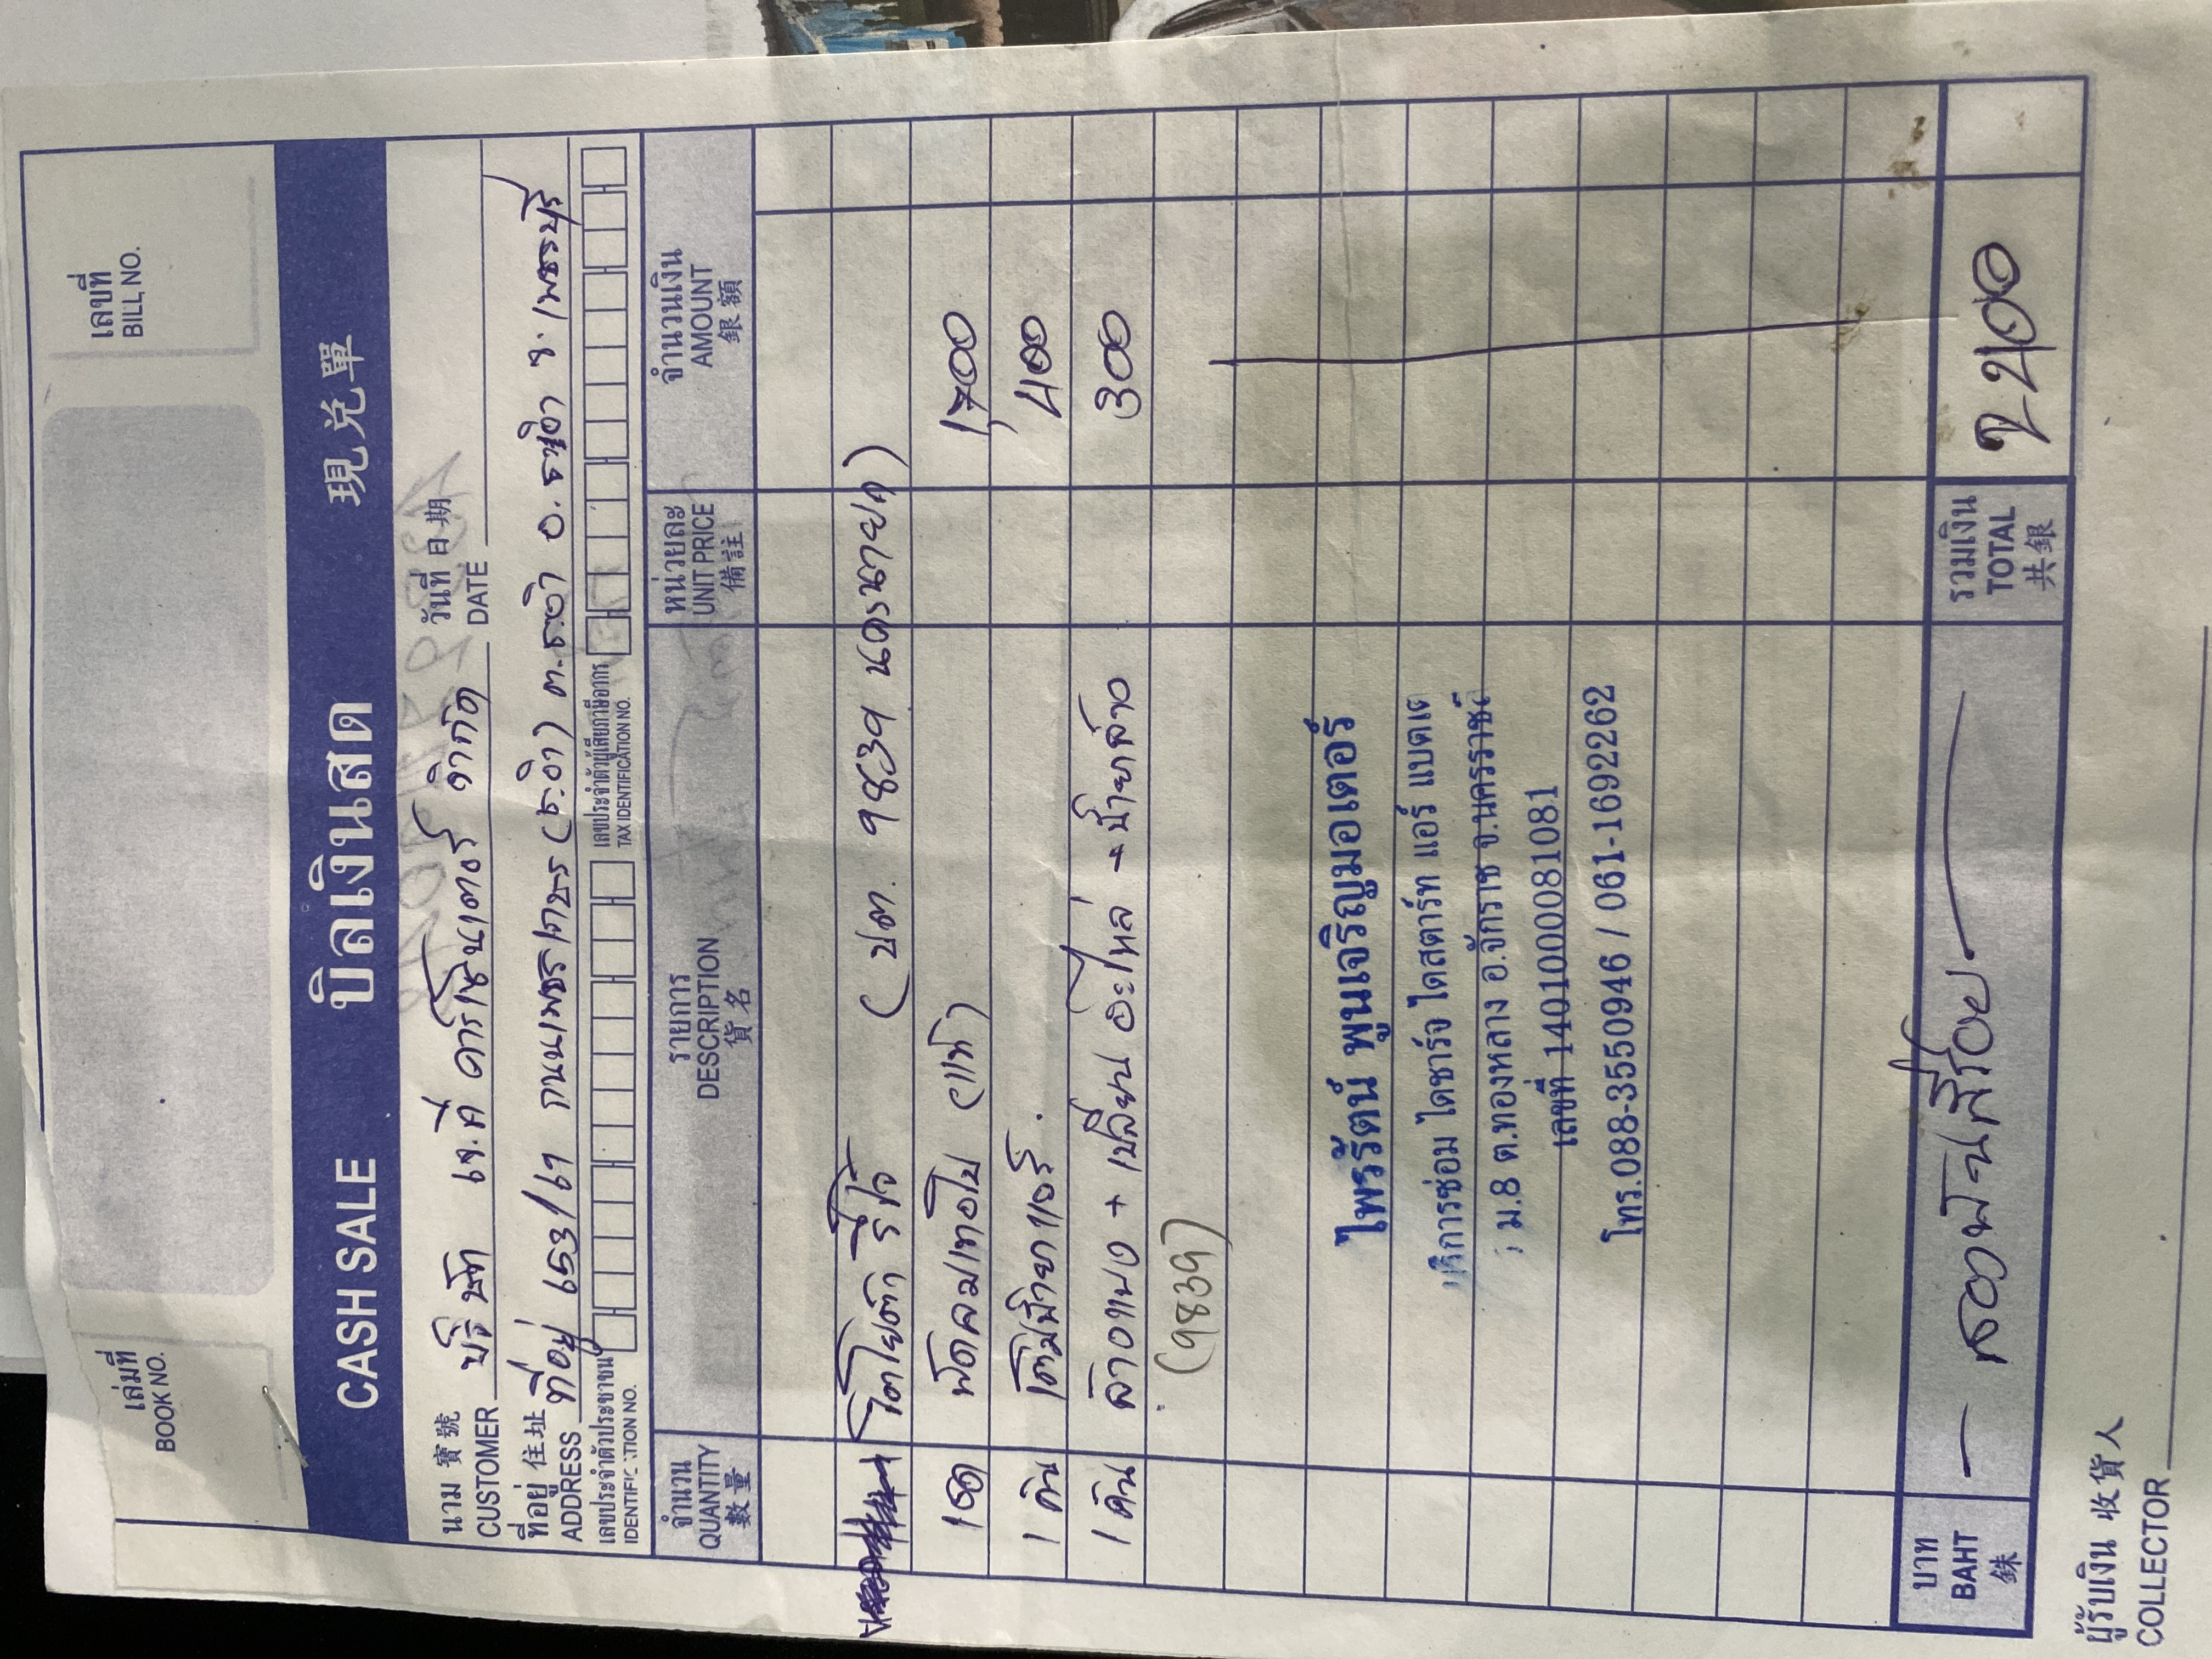 เล่มที่
BOOK NO.
เลขที่
BILL NO.
CASH SALE บิลเงินสด 現兑單
นาม 寶號
CUSTOMER บริษัท เจ.ที คาร์เซ็นเตอร์ จำกัด
วันที่ 日期
DATE
ที่อยู่ 住址
ADDRESS ที่อยู่ 653/67 ถนนเพชรเกษม (ช.อำ) ต.ชะอำ อ.ชะอำ จ.เพชรบุรี
เลขประจำตัวประชาชน
IDENTIFICATION NO.
เลขประจำตัวผู้เสียภาษีอากร
TAX IDENTIFICATION NO.
จำนวน QUANTITY 數量
รายการ DESCRIPTION 貨名
หน่วยละ UNIT PRICE 備註
จำนวนเงิน AMOUNT 銀額
โตโยต้า รีโว้ (บต. 9839 นครนายก)
1 ชุด พัดลมเทอโบ (แท้) 1,700
1 คัน เติมน้ำยาแอร์ 400
1 คัน ล้างแผง + เปลี่ยน อะไหล่ + น้ำยาล้าง 300
(9839)
ไพรรัตน์ พูนเจริญมอเตอร์
บริการซ่อม ไดชาร์จ ไดสตาร์ท แอร์ แบตเต
ม.8 ต.ทองหลาง อ.จักราช จ.นครราชส
เลขที่ 1401000081081
โทร.088-3550946 / 061-1692262
บาท BAHT 銖
— สองพันสี่ร้อย —
รวมเงิน TOTAL 共銀
2400
ผู้รับเงิน 收貨人
COLLECTOR